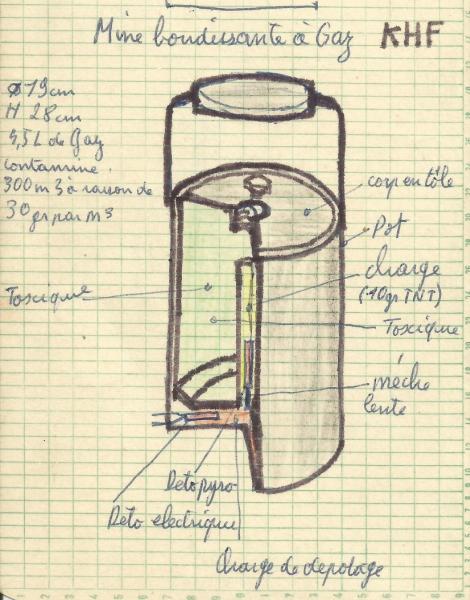 Mine bondissante à Gaz KHF
ø 19cm
H 28cm
4,5L de Gaz
contamine
300m3 à raison de
30gr par m3
corp en tôle
Pot
charge
(40gr TNT)
Toxique
Toxique
méche
lente
Deto pyro
Deto electrique
Charge de depotage